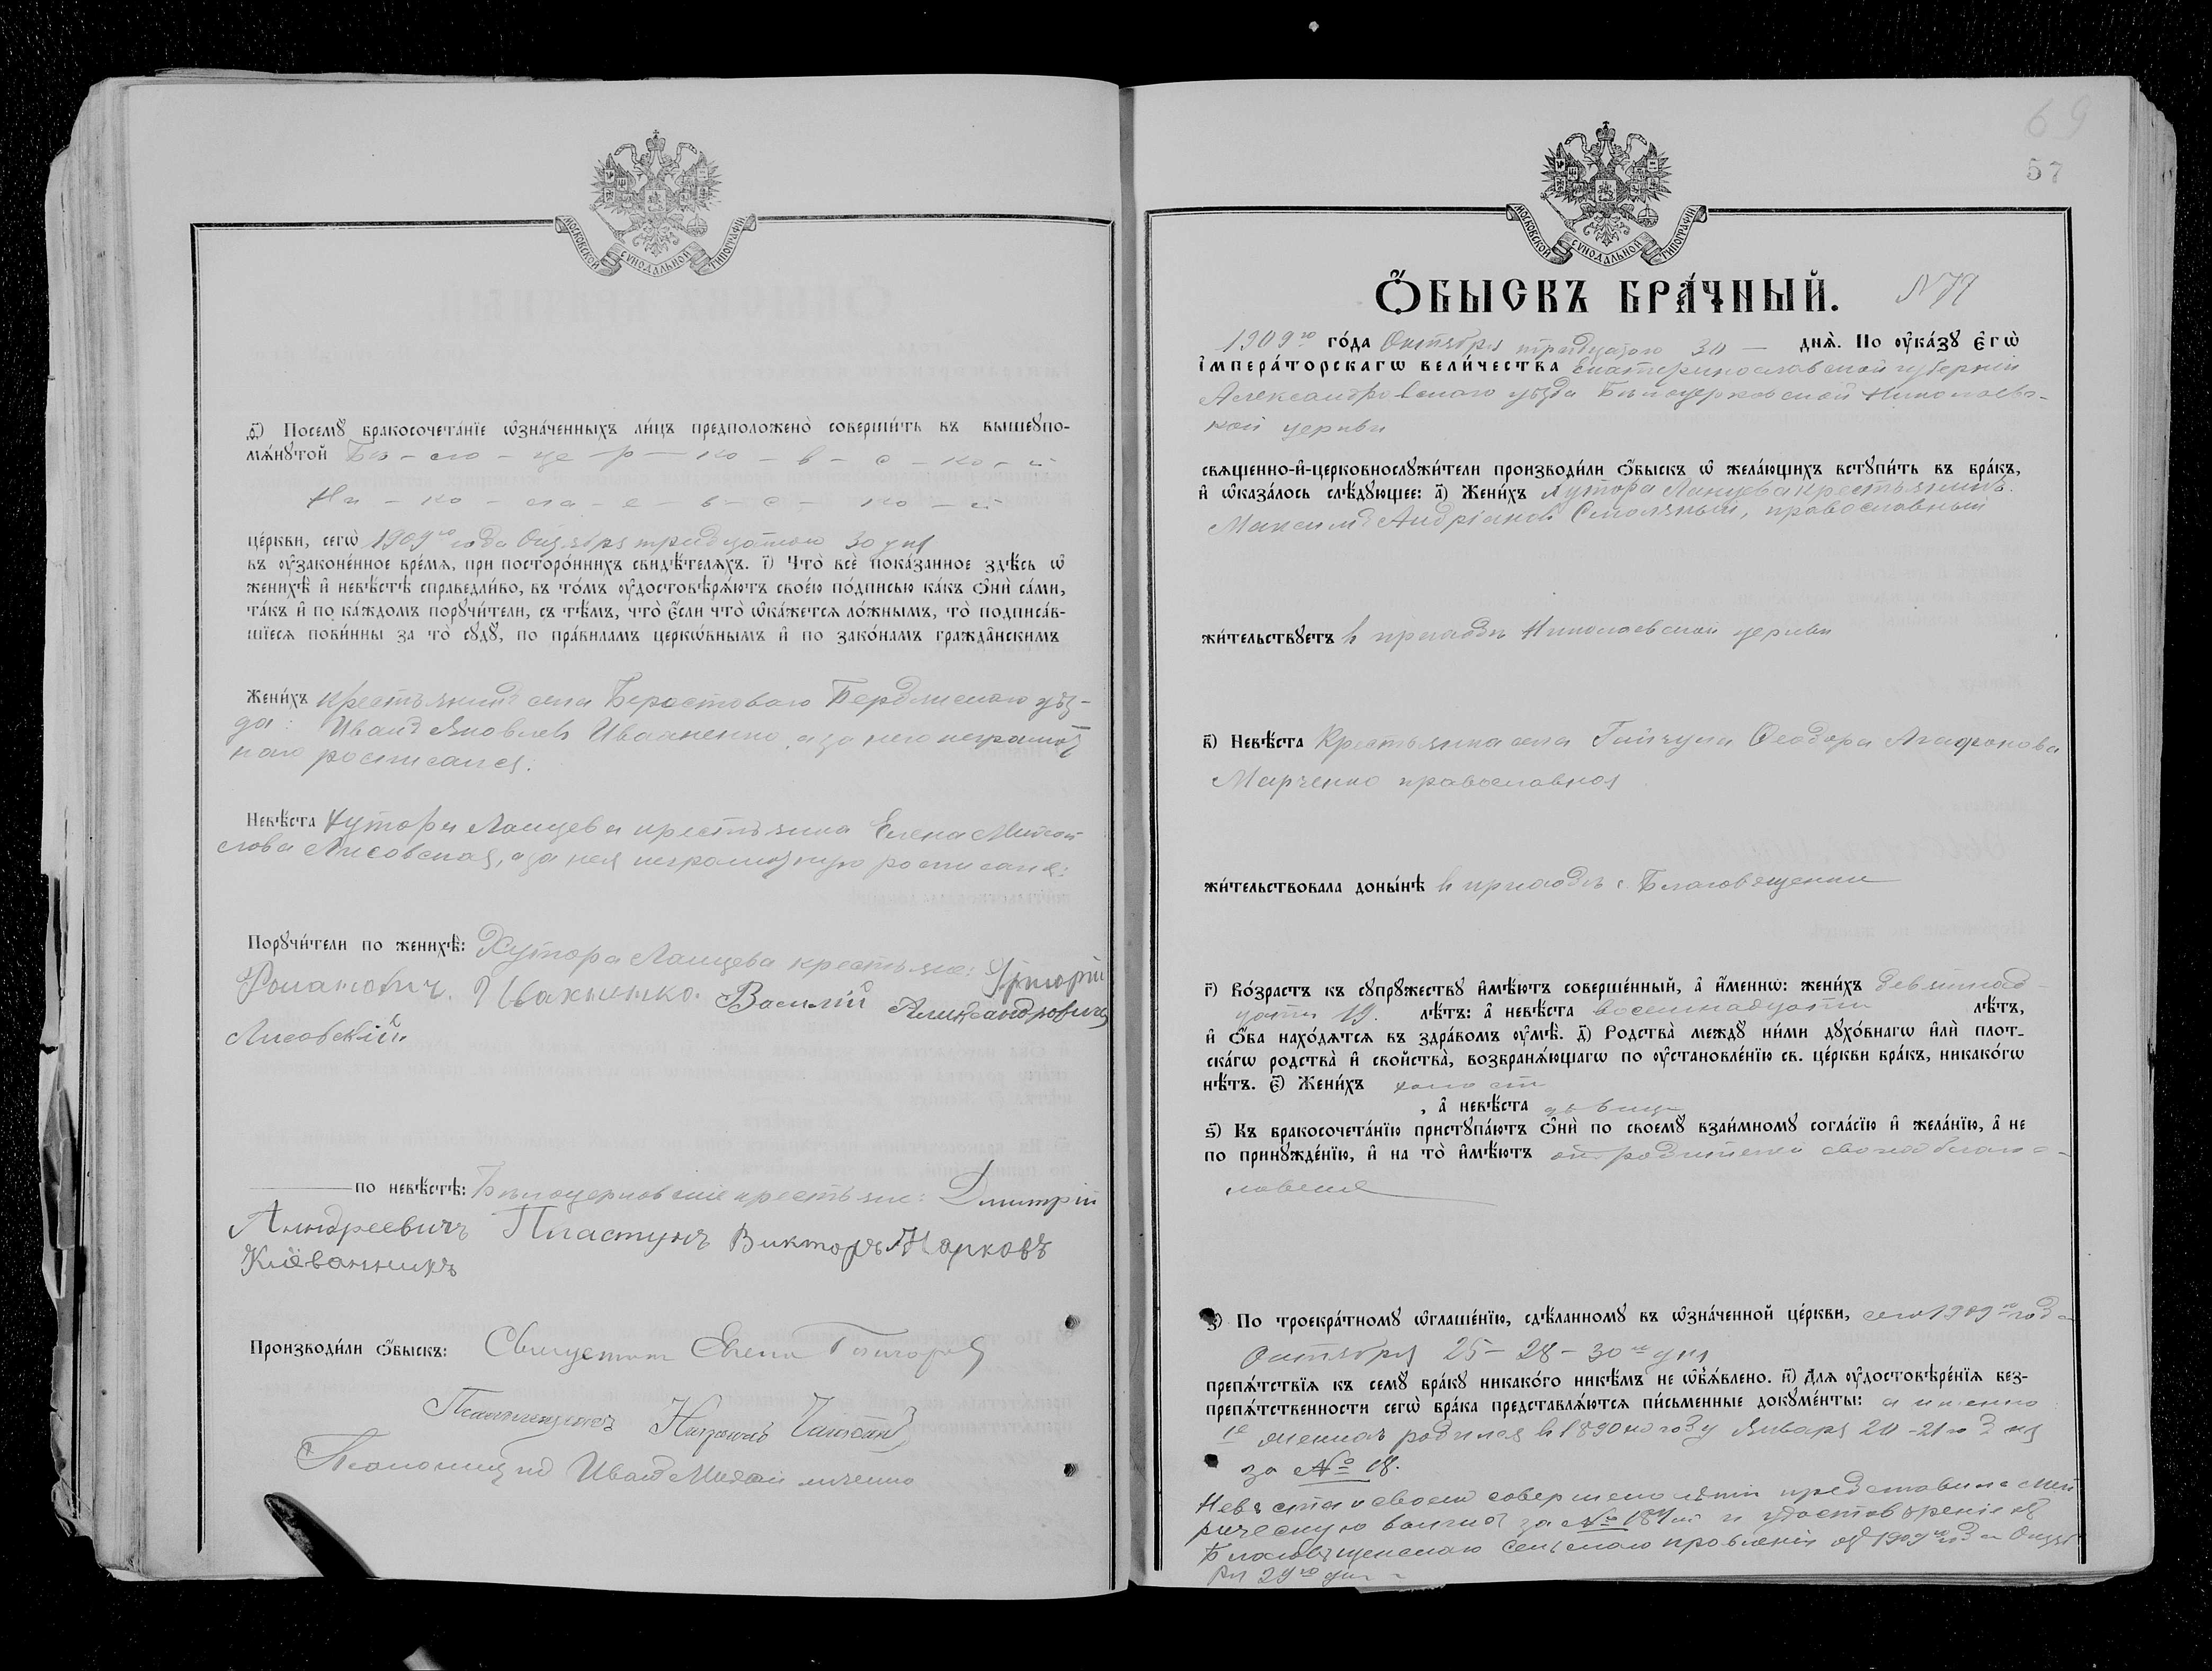 МОСКОВСКОЙ СУНОДАЛЬНОЙ ТИПОГРАФІИ
ѳ҃) Посемꙋ̀ бракосочета́нїе ѡ҆зна́ченныхъ ли́цъ предположено̀ соверши́ть въ вышеꙋпо-
мѧ́нꙋтой Бѣ - ло - це - р - ко - в - с - ко - й
Ни - ко - ла - е - в - с - ко - й
це́ркви, сегѡ̀ 1909го года Октября тридцатого 30 дня
въ ᲂу҆зако́ненное вре́мѧ, при посторо́ннихъ свидѣ́телѧхъ. і҃) Что̀ всѐ пока́занное здѣ́сь ѡ҆
женихѣ̀ и҆ невѣ́стѣ справедли́во, въ то́мъ ᲂу҆достовѣрѧ́ютъ свое́ю по́дписью ка́къ ѻ҆нѝ са́ми,
та́къ и҆ по ка́ждомъ порꙋчи́тели, съ тѣ́мъ, что̀ є҆́сли что̀ ѡ҆ка́жетсѧ ло́жнымъ, то̀ подписа́в-
шїесѧ пови́нны за то̀ сꙋдꙋ̀, по пра́виламъ церкѡ́внымъ и҆ по зако́намъ гражда́нскимъ
Жени́хъ крестьянинъ села Берестоваго Бердянскаго уѣз-
да: Иванъ Яковлевъ Ивахненко, а за него неграмот
наго росписался:
Невѣ́ста хутора Ланцева крестьянка Елена Михай
лова Лисовская, а за нея неграмотную
Порꙋчи́тели по женихѣ̀: Хутора Ланцева крестьяне: Григорій
Романовичъ Ивахненко. Василій Александровичъ
Лисовскій
по невѣ́стѣ: Бѣлоцерковскіе крестьяне: Дмитрій
Андреевичъ Пластунъ Викторъ Марковъ
Производи́ли ѻ҆́быскъ: Священникъ
Псаломщикъ
Псаломщикъ Иванъ
69
57
МОСКОВСКОЙ СУНОДАЛЬНОЙ ТИПОГРАФІИ
Ѻ҆́БЫСКЪ БРА́ЧНЫЙ. N 79
1909го го́да Октября тридцатого 30 — днѧ̀. По ᲂу҆ка́зꙋ Є҆гѡ̀
І҆мпера́торскагѡ вели́чества Екатеринославской губерніи
Александровскаго уѣзда Бѣлоцерковской Николаевс-
кой церкви
свѧщенно-и҆-церковнослꙋжи́тели производи́ли ѻ҆́быскъ ѡ҆ жела́ющихъ встꙋпи́ть въ бра́къ,
и҆ ѡ҆каза́лось слѣ́дꙋющее: а҃) Жени́хъ хутора Ланцева крестьянинъ
Максимъ Андріановъ Смоляный, православный
жи́тельствꙋетъ въ приходѣ Николаевской церкви
в҃) Невѣ́ста Крестьянка села Гайчула Ѳеодора Агафонова
Марченко православная
жи́тельствовала доны́нѣ въ приходѣ с. Благовѣщенки
г҃) Во́зрастъ къ сꙋпрꙋ́жествꙋ и҆мѣ́ютъ соверше́нный, а҆ и҆́меннѡ: жени́хъ девятнад
цати 19. лѣ́тъ: а҆ невѣ́ста восемнадцати лѣ́тъ,
и҆ ѻ҆́ба нахо́дѧтсѧ въ здра́вомъ ᲂу҆мѣ̀. д҃) Родства̀ междꙋ ни́ми дꙋхо́внагѡ и҆лѝ плот-
ска́гѡ родства̀ и҆ свойства̀, возбранѧ́ющагѡ по ᲂу҆становле́нїю св. це́ркви бра́къ, никако́гѡ
нѣ́тъ. є҃) Жени́хъ холостъ
, а҆ невѣ́ста дѣвица
ѕ҃) Къ бракосочета́нїю пристꙋпа́ютъ ѻ҆нѝ по своемꙋ̀ взаи́мномꙋ согла́сїю и҆ жела́нїю, а҆ не
по принꙋжде́нїю, и҆ на то̀ и҆мѣ́ютъ отъ родителей своихъ благос-
ловеніе
з҃) По троекра́тномꙋ ѡ҆глаше́нїю, сдѣ́ланномꙋ въ ѡ҆зна́ченной це́ркви, сего 1909го года
Октября 25 - 28 - 30го дня
препѧ́тствїѧ къ семꙋ̀ бра́кꙋ никако́го никѣ́мъ не ѡ҆б̾ѧ́влено. и҃) Для ᲂу҆достовѣре́нїѧ без-
препѧ́тственности сегѡ̀ бра́ка представлѧ́ютсѧ пи́сьменные докꙋме́нты: а именно
1е женихъ родился въ 1890мъ году Января 20 - 21го дня
за № 18.
Невѣста о своемъ совершенолѣтіи представила мет
рическую за № и удостовѣреніе отъ
Благовѣщенскаго Сельскаго правленія отъ 1909го года Октяб
ря 29го дня